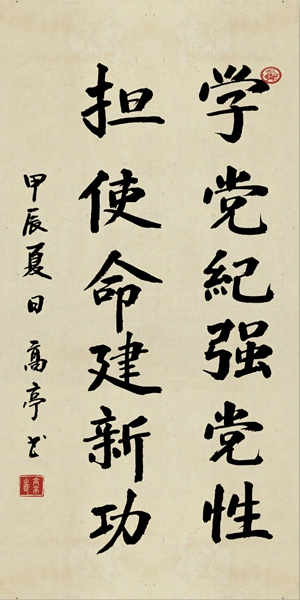 学党紀强党性
担使命建新功
甲辰夏日高亭书